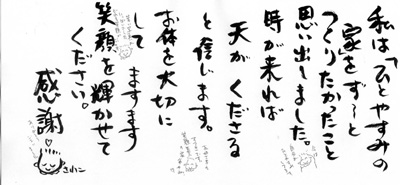 私は「ひとやすみの
家をず〜と
つくりたかったこと
思い出しました。
時が来れば
天がくださる
と信じます。
お体を大切に
して ますます
笑顔を輝かせて
ください。
感謝♡
さわこ